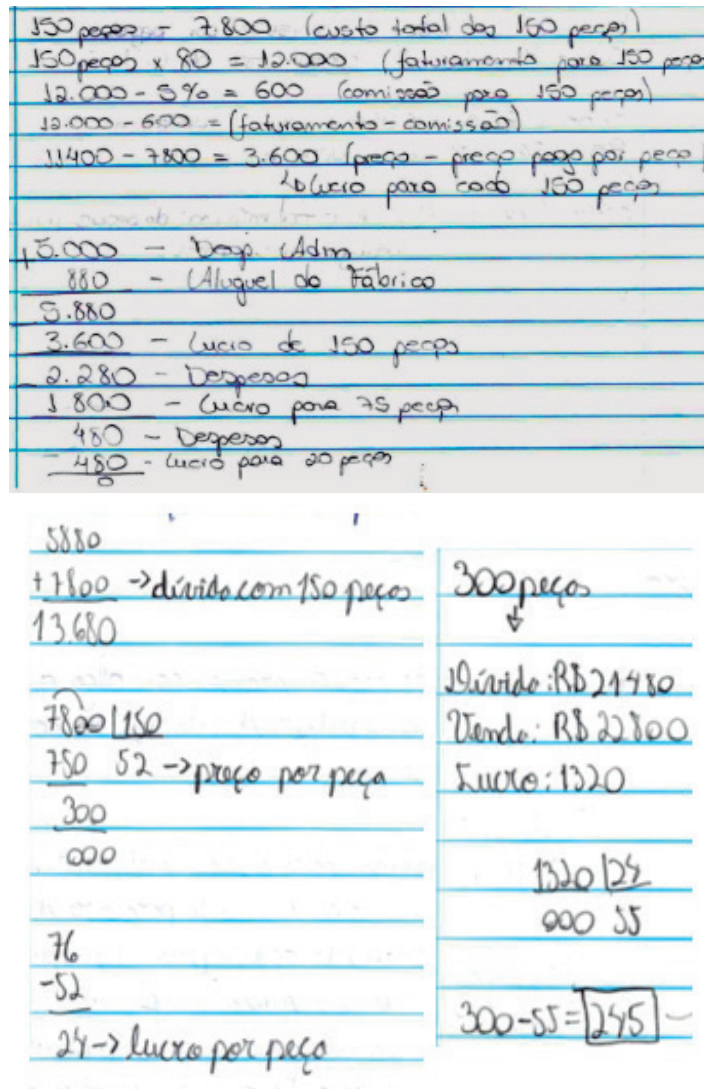 150 peças - 7.800 (custo total das 150 peças)
150 peças x 80 = 12.000 (faturamento para 150 peças
12.000 - 5% = 600 (comissão para 150 peças)
12.000 - 600 = (faturamento - comissão)
11400 - 7800 = 3.600 (preço - preço pago por peça
↳ lucro para cada 150 peças
+5.000 - Desp. Adm
880 - Aluguel da Fábrica
5.880
3.600 - Lucro de 150 peças
2.280 - Despesas
1 800 - Lucro para 75 peças
480 - Despesas
- 480 - Lucro para 20 peças
0
5880
+7800 -> dívida com 150 peças
13.680
7800 |150
750 52 -> preço por peça
300
000
76
-52
24 -> lucro por peça
300 peças
↓
Dívida: R$ 21480
Venda: R$ 22800
Lucro: 1320
1320 |24
000 55
300-55= 245